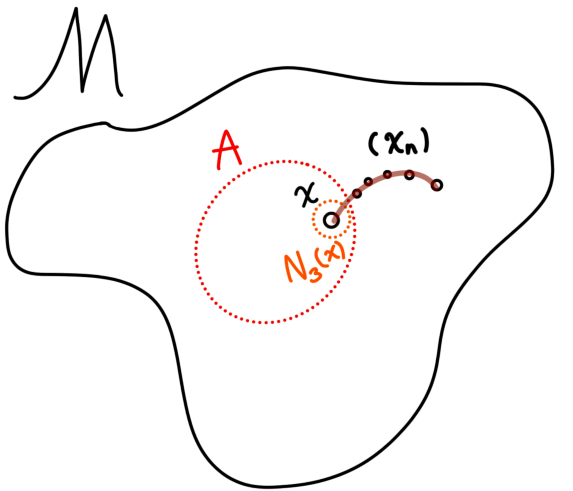 M
A
(xₙ)
x
N₃(x)